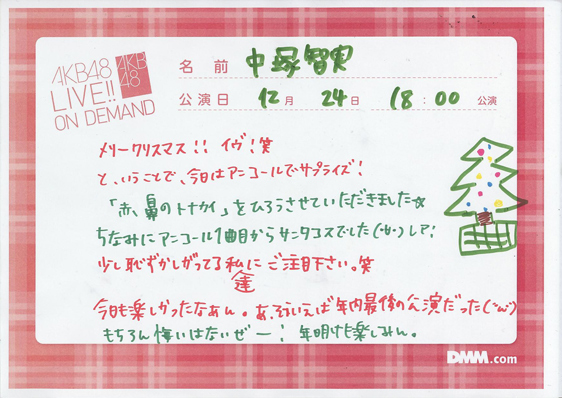 AKB48
LIVE!!
ON DEMAND
AKB
48
名前 中塚智実
公演日 12月 24日 18:00 公演
メリークリスマス!! イヴ!笑
と、いうことで、今日はアンコールでサプライズ!
「赤、鼻のトナカイ」をひろうさせていただきました☆
ちなみにアンコール1曲目からサンタコスでした(・∀・)レア!
少し恥ずかしがってる私達にご注目下さい。笑
今日も楽しかったなぁん。あ、そういえば年内最後の公演だった(・ω・)
もちろん悔いはないぜー! 年明けも楽しみん。
DMM.com